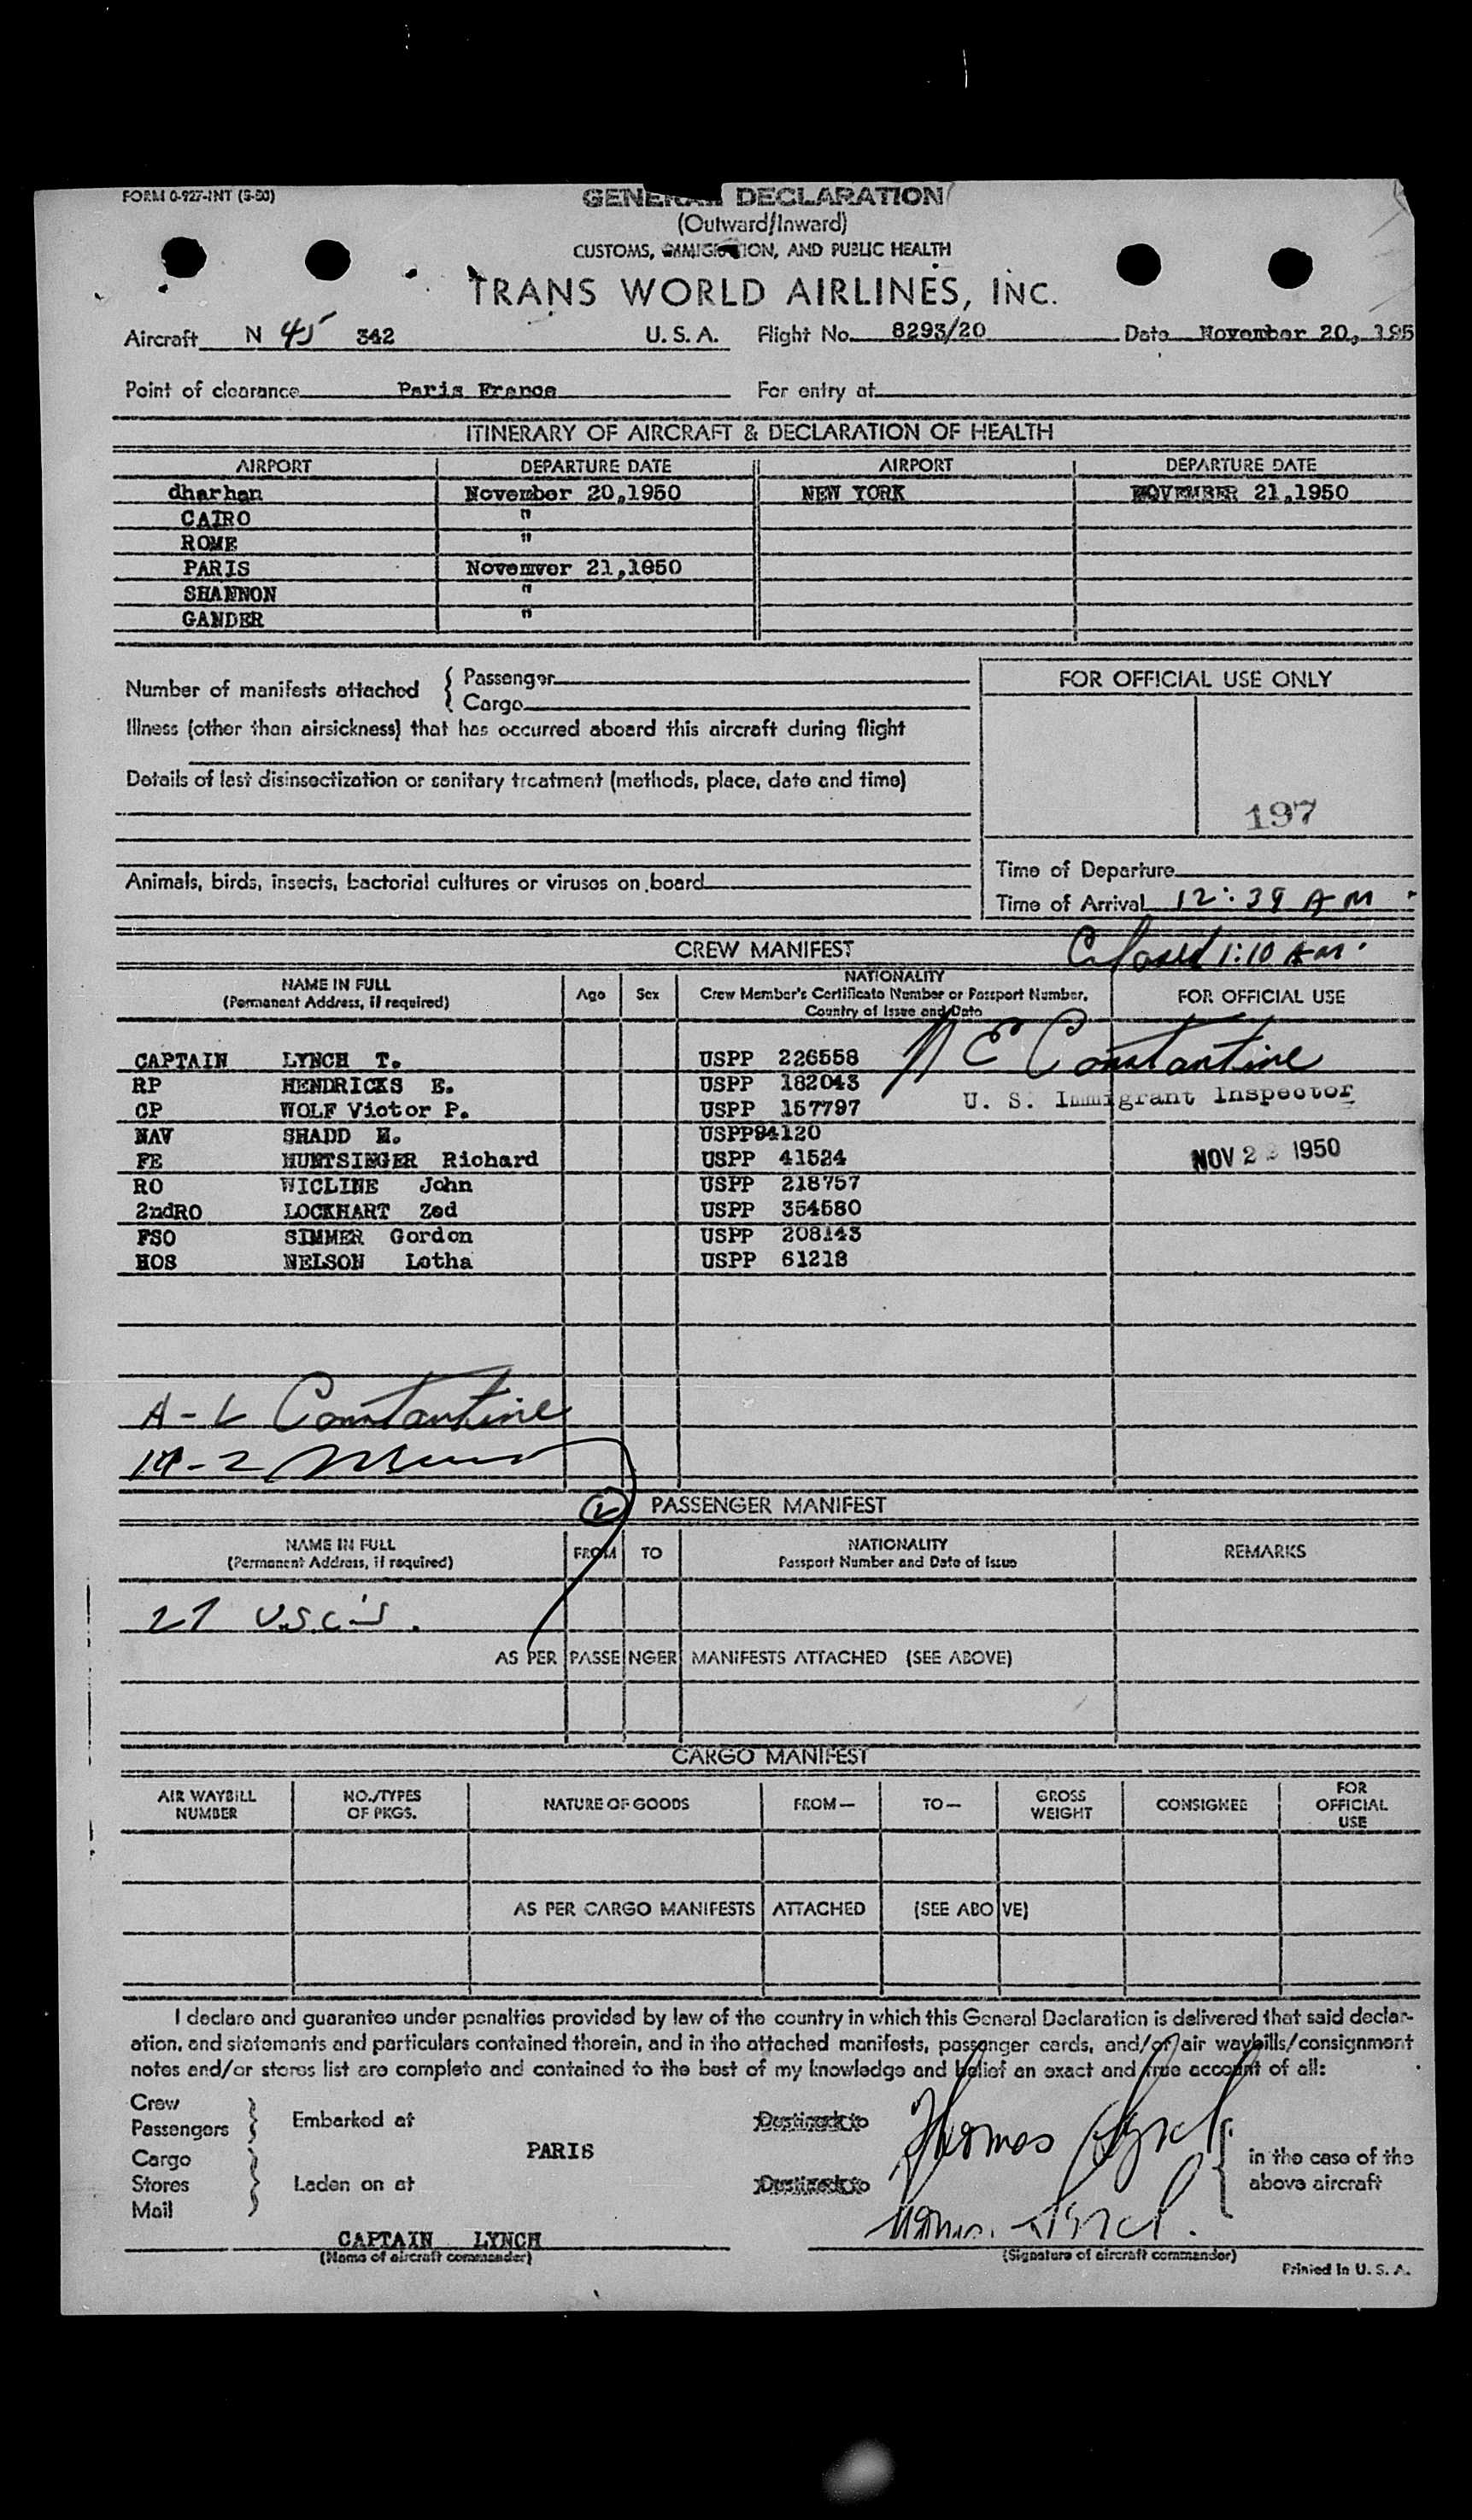 FORM 0-927-INT (5-50)
GENERAL DECLARATION
(Outward/Inward)
CUSTOMS, IMMIGRATION, AND PUBLIC HEALTH
TRANS WORLD AIRLINES, INC.
Aircraft N 45 342 U.S.A. Flight No. 8293/20 Date November 20, 195
Point of clearance Paris France For entry at
ITINERARY OF AIRCRAFT & DECLARATION OF HEALTH
AIRPORT DEPARTURE DATE AIRPORT DEPARTURE DATE
dharhan November 20,1950 NEW YORK NOVEMBER 21,1950
CAIRO "
ROME "
PARIS Novemver 21,1950
SHANNON "
GANDER "
Number of manifests attached { Passenger
Cargo
FOR OFFICIAL USE ONLY
Illness (other than airsickness) that has occurred aboard this aircraft during flight
Details of last disinsectization or sanitary treatment (methods, place, date and time)
197
Animals, birds, insects, bacterial cultures or viruses on board
Time of Departure
Time of Arrival 12:39 AM
Closed 1:10 AM.
CREW MANIFEST
NAME IN FULL
(Permanent Address, if required)
Age Sex
NATIONALITY
Crew Member's Certificate Number or Passport Number,
Country of Issue and Date
FOR OFFICIAL USE
CAPTAIN LYNCH T. USPP 226558
N E Constantine
RP HENDRICKS E. USPP 182043
CP WOLF Victor P. USPP 157797
U. S. Immigrant Inspector
NAV SHADD M. USPP94120
FE HUNTSINGER Richard USPP 41524
NOV 22 1950
RO WICLINE John USPP 218757
2ndRO LOCKHART Zed USPP 354580
FSO SIMMER Gordon USPP 208143
HOS NELSON Letha USPP 61218
A-L Constantine
M-Z
PASSENGER MANIFEST
NAME IN FULL
(Permanent Address, if required)
FROM TO
NATIONALITY
Passport Number and Date of Issue
REMARKS
27 U.S.C's.
AS PER PASSENGER MANIFESTS ATTACHED (SEE ABOVE)
CARGO MANIFEST
AIR WAYBILL NUMBER
NO./TYPES OF PKGS.
NATURE OF GOODS
FROM—
TO—
GROSS WEIGHT
CONSIGNEE
FOR OFFICIAL USE
AS PER CARGO MANIFESTS ATTACHED (SEE ABOVE)
I declare and guarantee under penalties provided by law of the country in which this General Declaration is delivered that said declar-
ation, and statements and particulars contained therein, and in the attached manifests, passenger cards, and/or air waybills/consignment
notes and/or stores list are complete and contained to the best of my knowledge and belief an exact and true account of all:
Crew
Passengers } Embarked at Destined to
Thomas Lynch
PARIS
Cargo
Stores } Laden on at Destined to
Mail
in the case of the
above aircraft
Thomas Lynch.
CAPTAIN LYNCH
(Name of aircraft commander) (Signature of aircraft commander)
Printed in U. S. A.